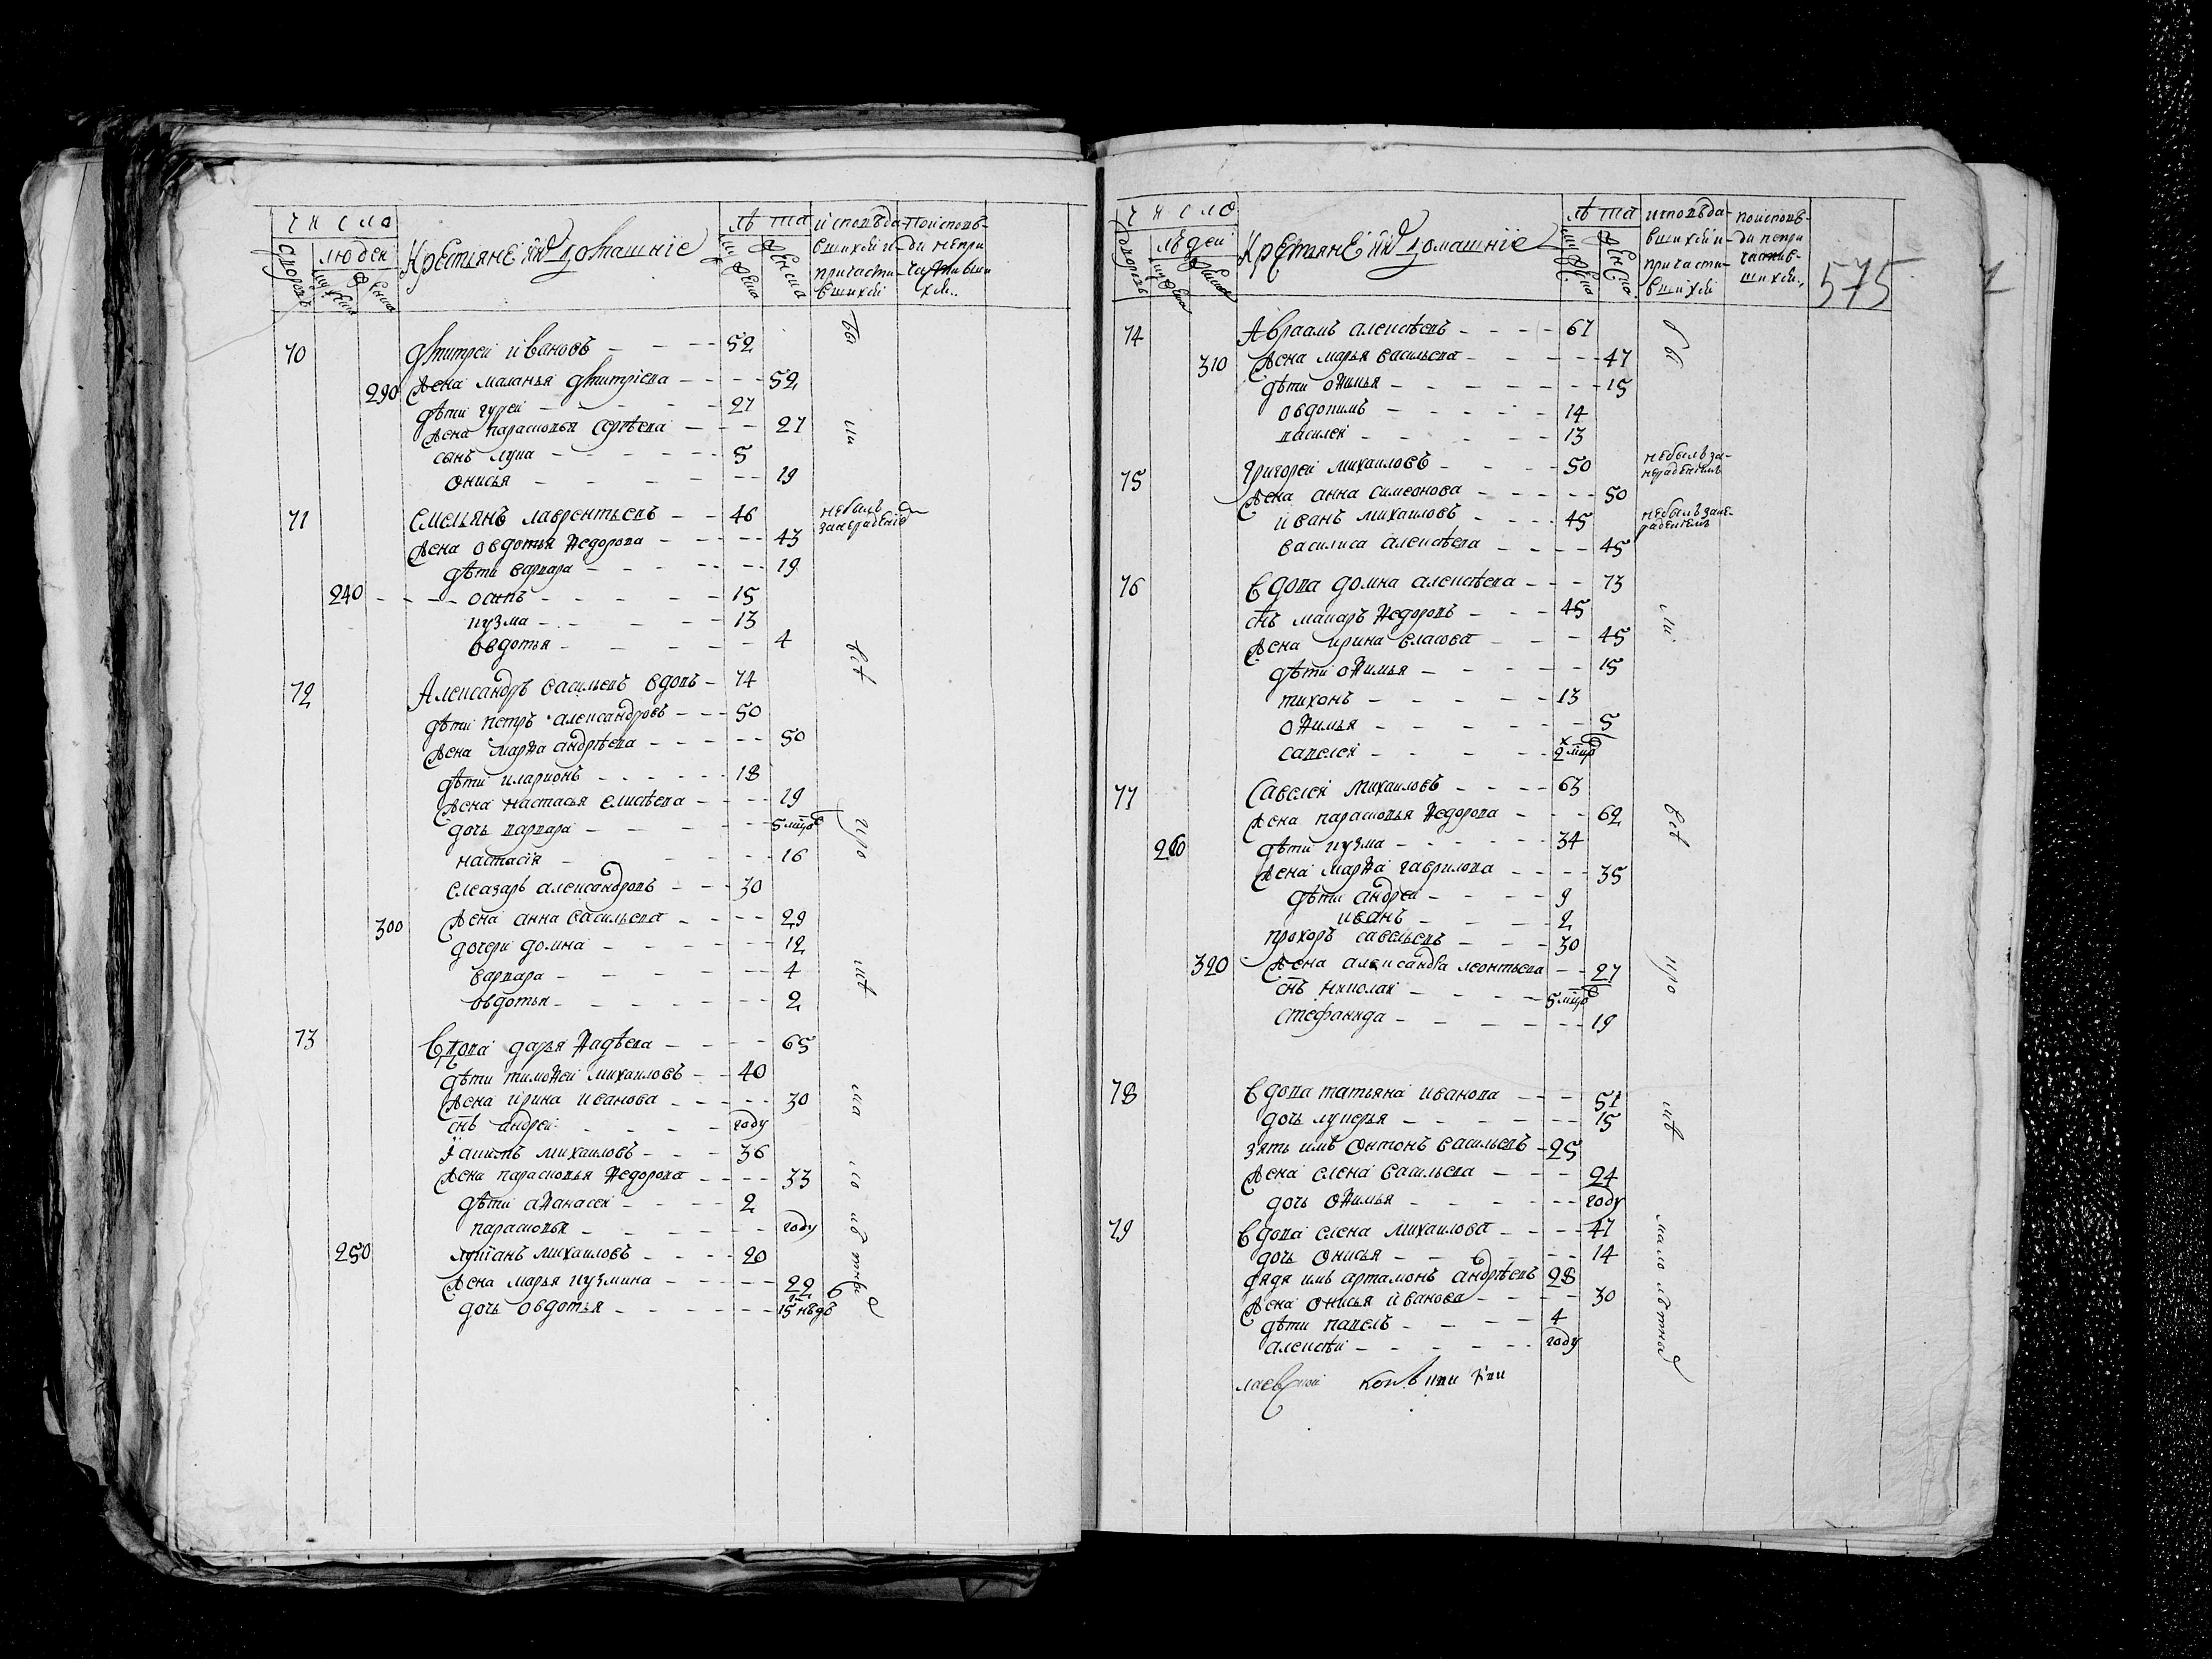 число
людей
дворовъ
мужеска
женска
Крестьяне и ихъ домашніе
лѣта
мужеска
женска
исповѣда-
вшихся и
причасти-
вшихся
по исповѣ-
ди непри
частивши
хся
70 Дмитрей ивановъ 52
290 Жена маланья дмитріева 52
дѣти гурей 27
Жена парасковья сергѣева 27
сынъ лука 5
онисья 19
71 Емельянъ лаврентьевъ 46 небылъ
занерадѣніе
Жена овдотья ѳедорова 43
дѣти варвара 19
240 осипъ 15
кузма 13
овдотья 4
72 Александръ васильевъ вдовъ 74
дѣти петръ александровъ 50
Жена марѳа андрѣева 50
дѣти иларионъ 18
Жена настасья елисѣева 19
дочь варвара 5 мцовъ
настасія 16
елеазаръ александровъ 30
300 Жена анна васильева 29
дочери домна 12
варвара 4
овдотья 2
73 Вдова дарья ѳадѣева 65
дѣти тимоѳей михаиловъ 40
Жена ирина иванова 30
снъ андрей году
якимъ михаиловъ 36
Жена парасковья ѳедорова 33
дѣти аѳанасей 2
парасковья году
250 лукіанъ михаиловъ 20
Жена марья кузмина 22
дочь овдотья 15 недѣ
число
людей
дворовъ
мужеска
женска
Крестьяне и ихъ домашніе
лѣта
мужеска
женска
исповѣда-
вшихся и
причасти-
вшихся
по исповѣ-
ди непри
частив-
шихся
575
74 Авраамъ алексѣевъ 67
310 Жена марья васильева 47
дѣти оѳимья 15
овдокимъ 14
василей 13
75 Григорей михаиловъ 50 небылъ за-
нерадѣніемъ
Жена анна симеонова 50
иванъ михаиловъ 45 небылъ зане-
радѣніемъ
василиса алексѣева 45
76 Вдова домна алексѣева 73
снъ макаръ ѳедоровъ 45
Жена ирина власова 45
дѣти оѳимья 15
тихонъ 13
оѳимья 5
савелей 2 мцо
77 Савелей михаиловъ 63
Жена парасковья ѳедорова 62
260 дѣти кузма 34
Жена марѳа гаврилова 35
дѣти андрей 9
иванъ 2
прохоръ савельевъ 30
320 Жена александра леонтьева 27
снъ николай 5 мцов
стефанида 19
78 Вдова татьяна иванова 51
дочь лукерья 15
зять имъ онтонъ васильевъ 25
Жена елена васильева 24
дочь оѳимья году
79 Вдова елена михаилова 47
дочь онисья 14
дядя имъ артамонъ андрѣевъ 28
Жена онисья иванова 30
дѣти павелъ 4
алексѣй году
малолѣтна